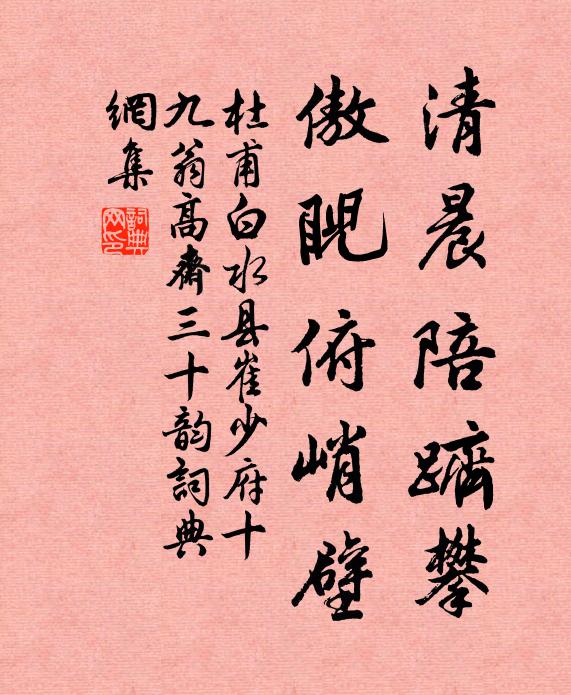 清晨陪躋攀
傲睨俯峭壁
杜甫白水县崔少府十
九翁高齋三十韵詞典
網集
詞典
网印